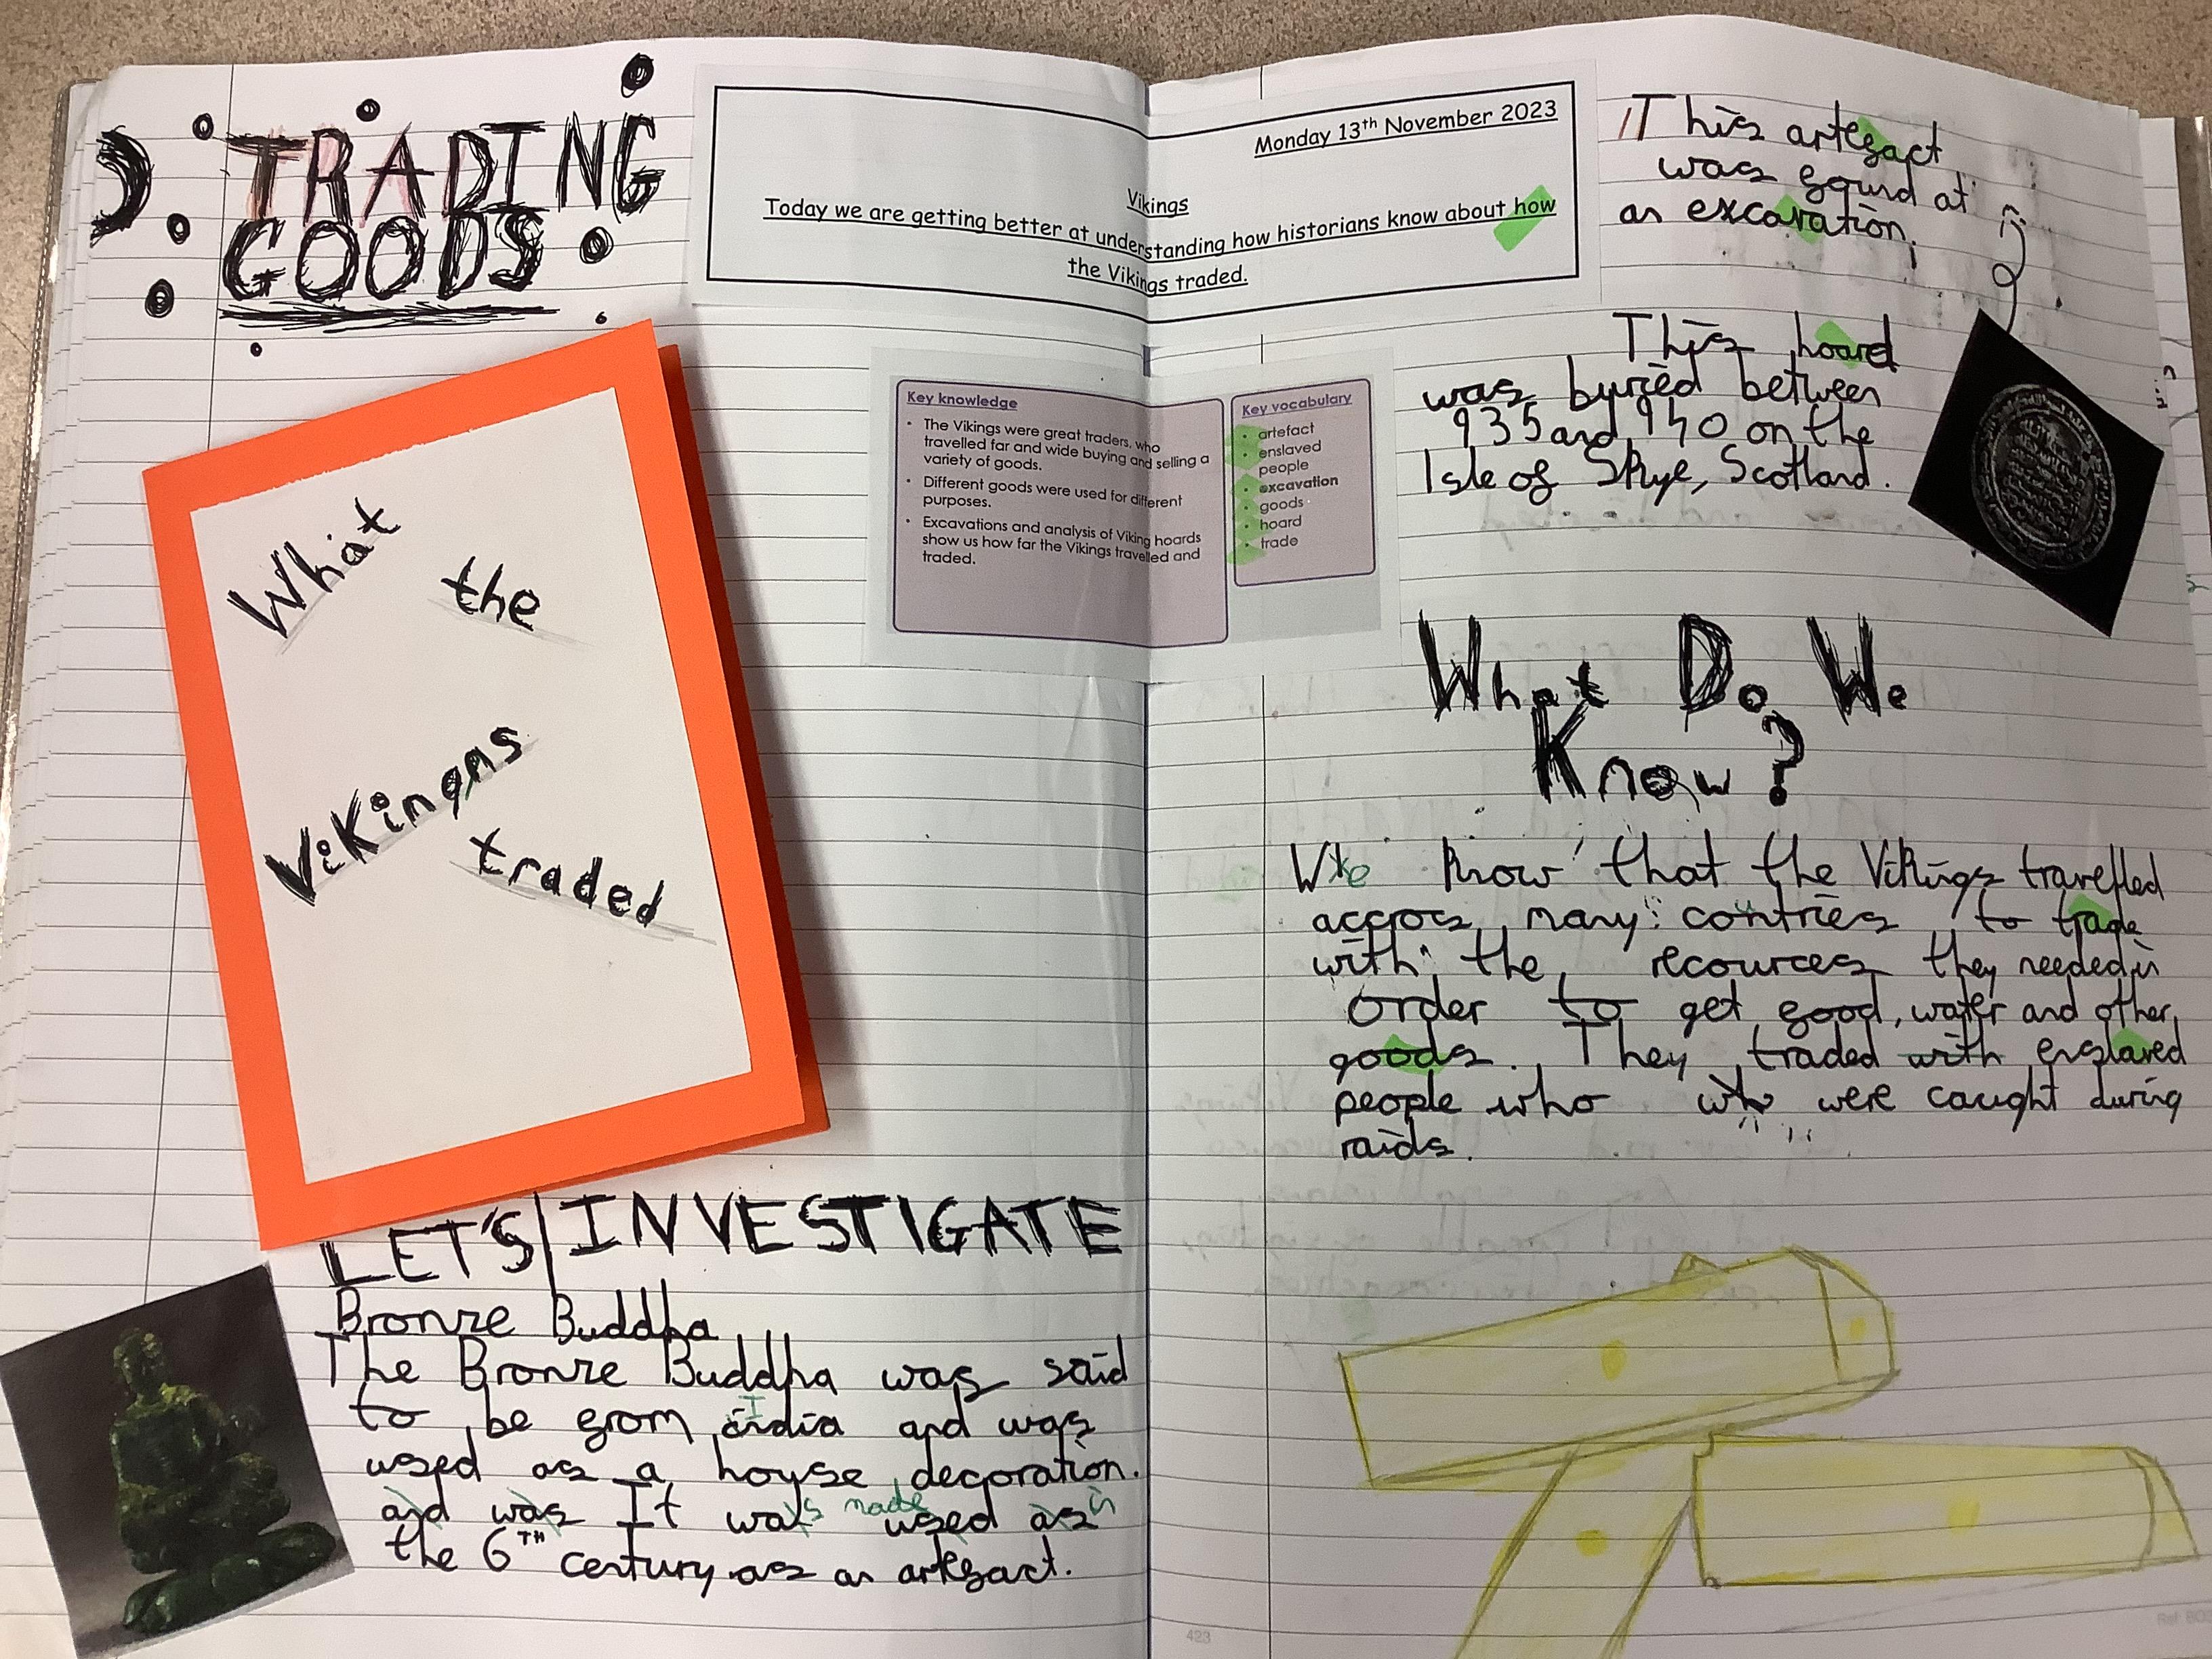 TRADING
GOODS
Monday 13th November 2023
Vikings
Today we are getting better at understanding how historians know about how
the Vikings traded.
Key knowledge
• The Vikings were great traders, who
travelled far and wide buying and selling a
variety of goods.
• Different goods were used for different
purposes.
• Excavations and analysis of Viking hoards
show us how far the Vikings travelled and
traded.
Key vocabulary
• artefact
• enslaved
people
• excavation
• goods
• hoard
• trade
What
the
Vikings
traded
LET'S INVESTIGATE
Bronze Buddha
The Bronze Buddha was said
to be from India and was
used as a house decoration.
and was It was made used as in
the 6TH century as an artefact.
This artefact
was found at
an excavation.
This hoard
was buried between
935 and 940 on the
Isle of Skye, Scotland.
What Do We
Know?
We know that the Vikings travelled
accros many contries to trade
with the recources they needed in
order to get food, water and other
goods. They traded with enslaved
people who who were caught during
raids.
423